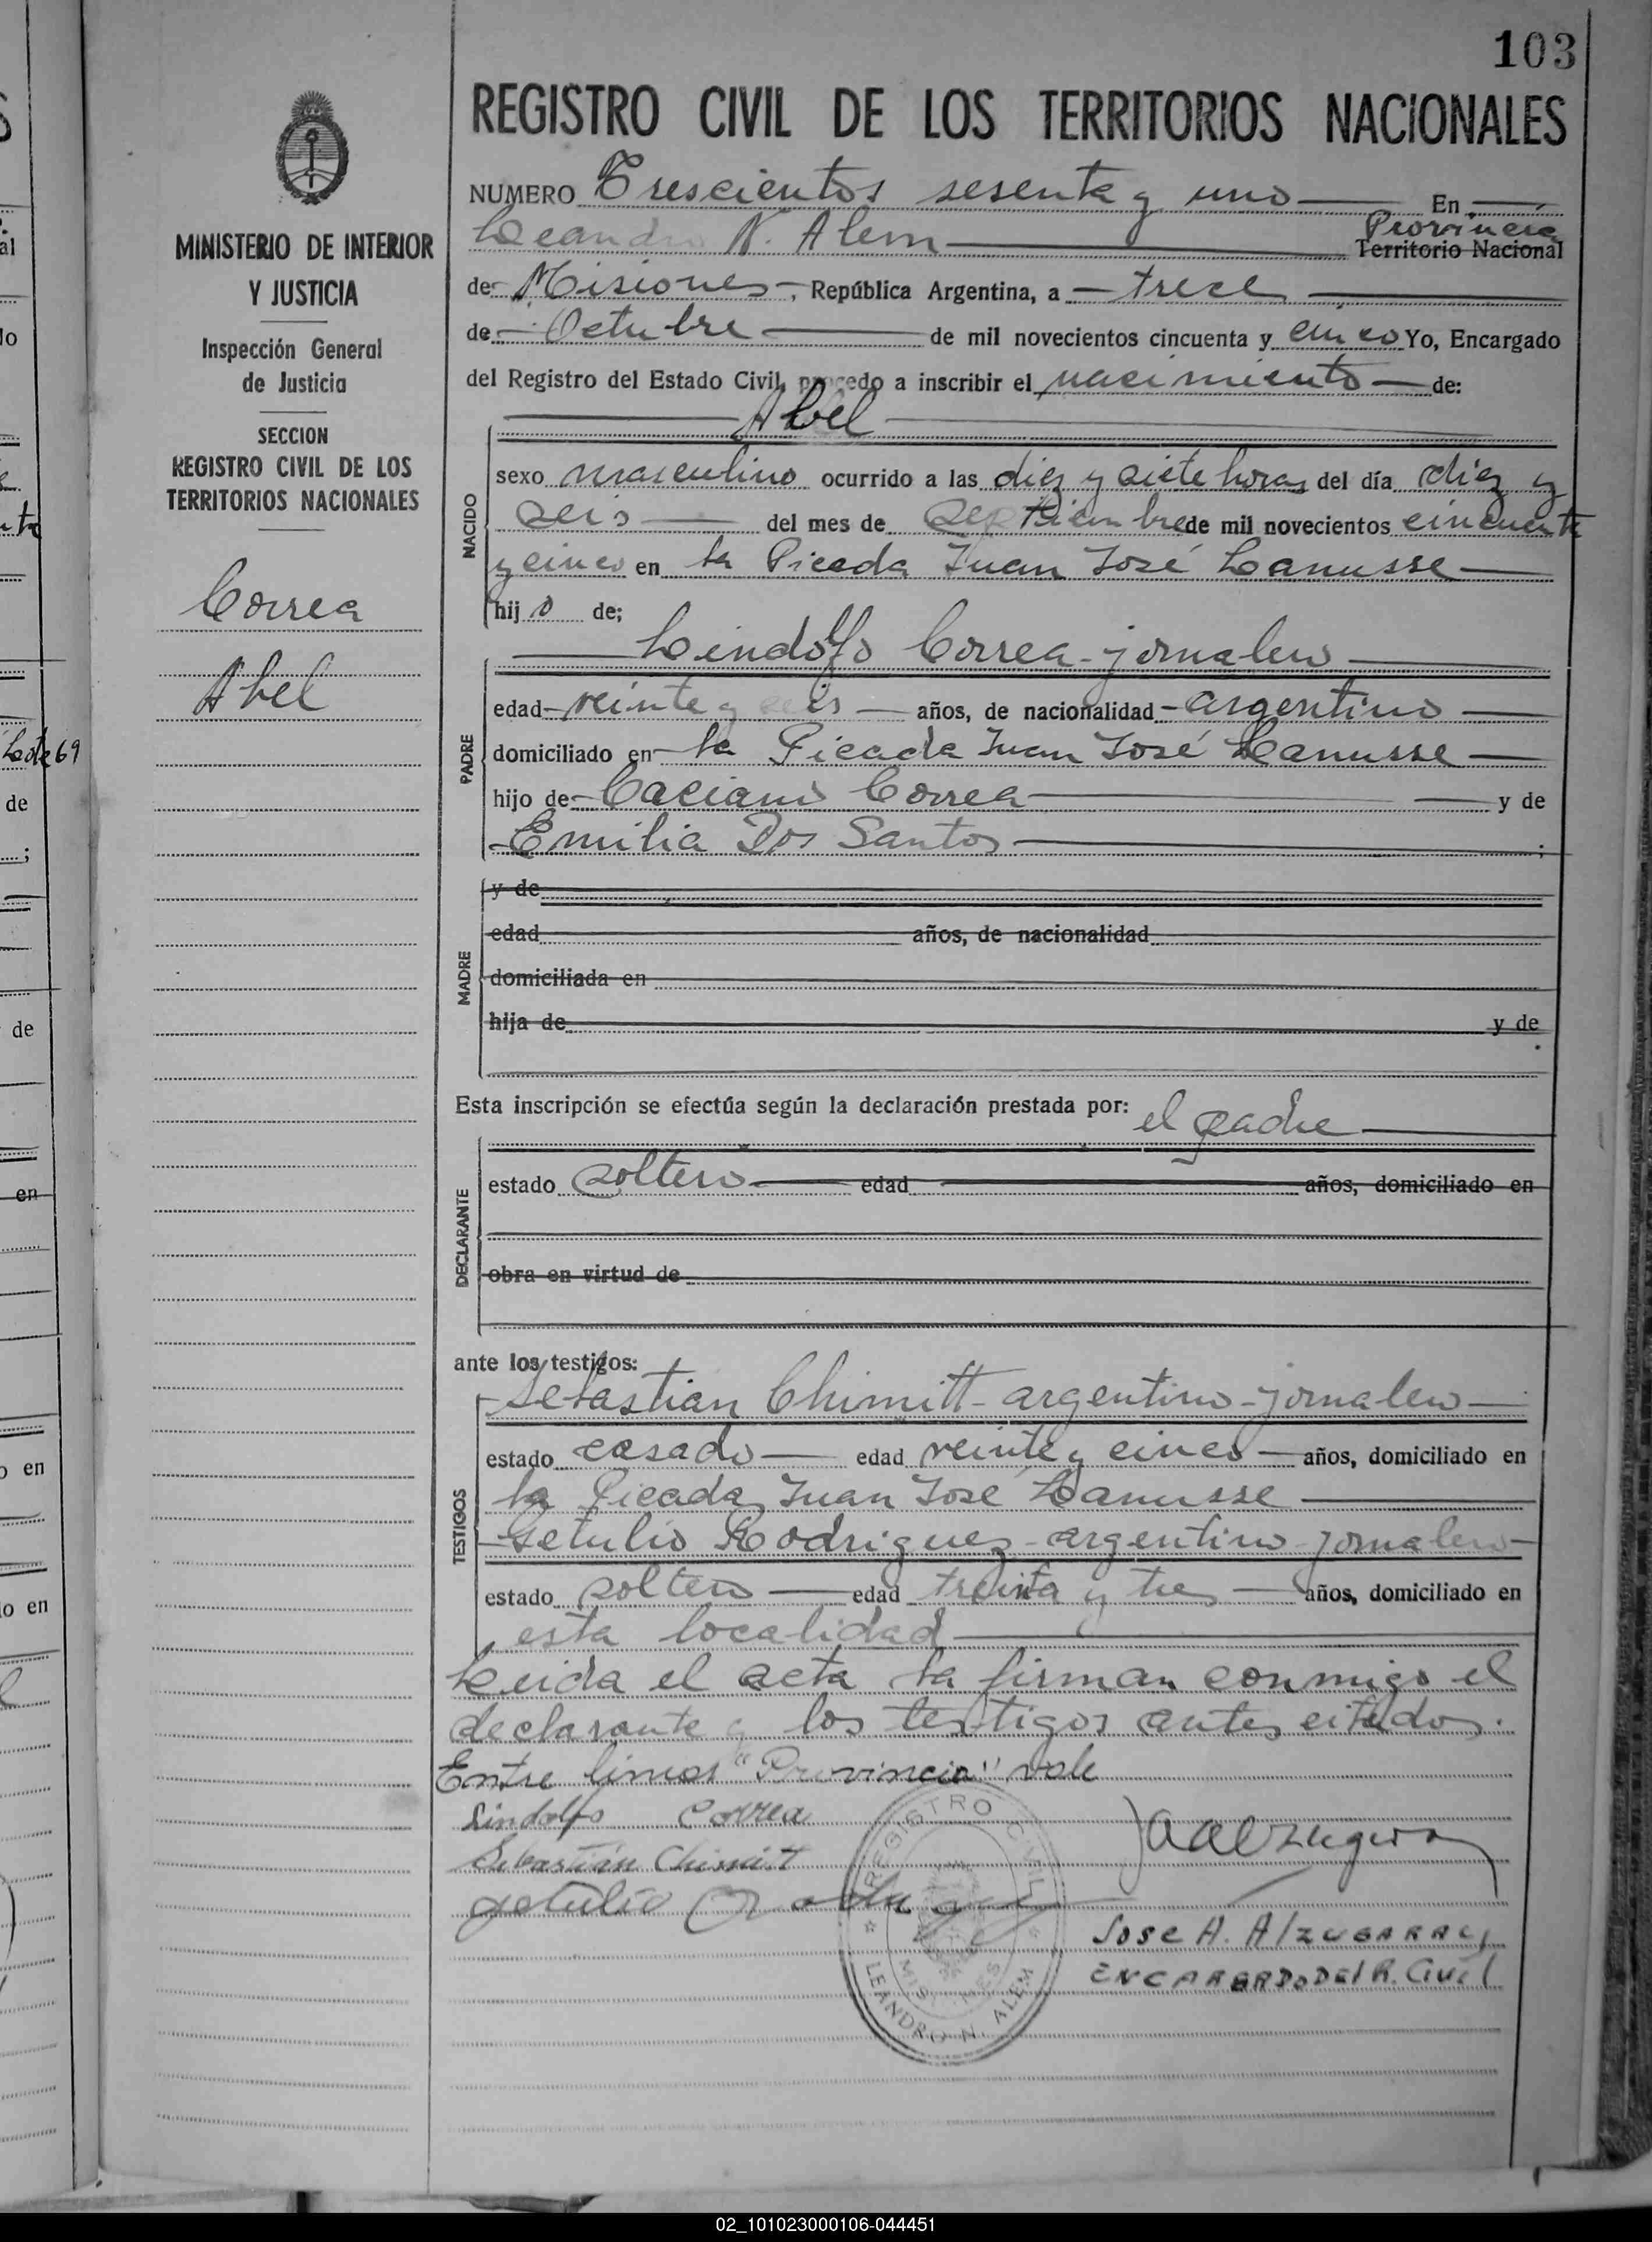 103
REGISTRO CIVIL DE LOS TERRITORIOS NACIONALES
MINISTERIO DE INTERIOR
Y JUSTICIA
Inspección General
de Justicia
SECCION
REGISTRO CIVIL DE LOS
TERRITORIOS NACIONALES
Correa
Abel
NUMERO Trescientos sesenta y uno En
Leandro N. Alem Provincia Territorio Nacional
de Misiones, República Argentina, a trece
de Octubre de mil novecientos cincuenta y cinco Yo, Encargado
del Registro del Estado Civil, procedo a inscribir el nacimiento de:
Abel
NACIDO
sexo masculino ocurrido a las diez y siete horas del día diez y
seis del mes de Septiembre de mil novecientos cincuenta
y cinco en la Picada Juan José Lanusse
hijo de;
Lindolfo Correa - jornalero
PADRE
edad veinte y seis años, de nacionalidad argentino
domiciliado en la Picada Juan José Lanusse
hijo de Caciano Correa y de
Emilia Dos Santos ;
MADRE
y de
edad años, de nacionalidad
domiciliada en
hija de y de
.
Esta inscripción se efectúa según la declaración prestada por: el padre
DECLARANTE
estado soltero edad años, domiciliado en
obra en virtud de
ante los testigos:
Sebastian Chimitt - argentino - jornalero
TESTIGOS
estado casado edad veinte y cinco años, domiciliado en
la Picada Juan José Lanusse
Getulio Rodriguez - argentino - jornalero
estado soltero edad treinta y tres años, domiciliado en
esta localidad
Leida el acta la firman conmigo el
declarante y los testigos antes citados.
Entre lineas "Provincia" vale
Lindolfo Correa
Sebastián Chimitt
getulio
REGISTRO CIVIL
MISIONES
LEANDRO N. ALEM
JOSE A. AlZUGARAY
ENCARGADO DEL R. Civil
Lote 69
al
de
;
de
en
en
02_101023000106-044451